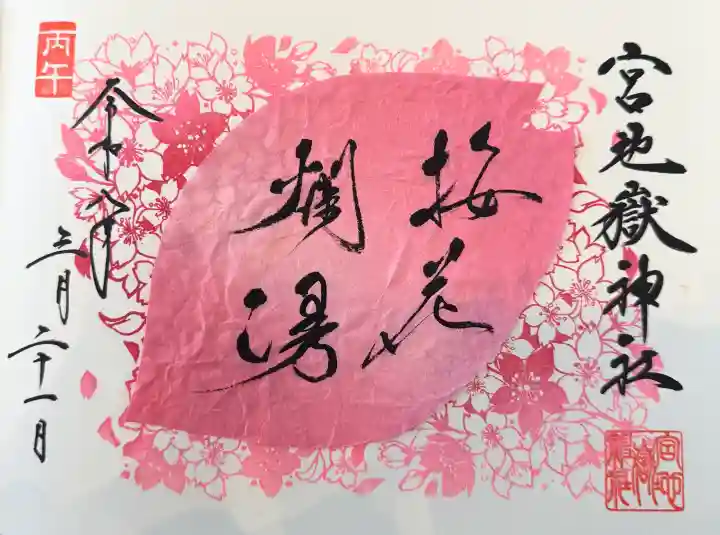 宮地嶽神社
宮地嶽神社
桜花
爛漫
丙午
令和八年
三月
二十一日